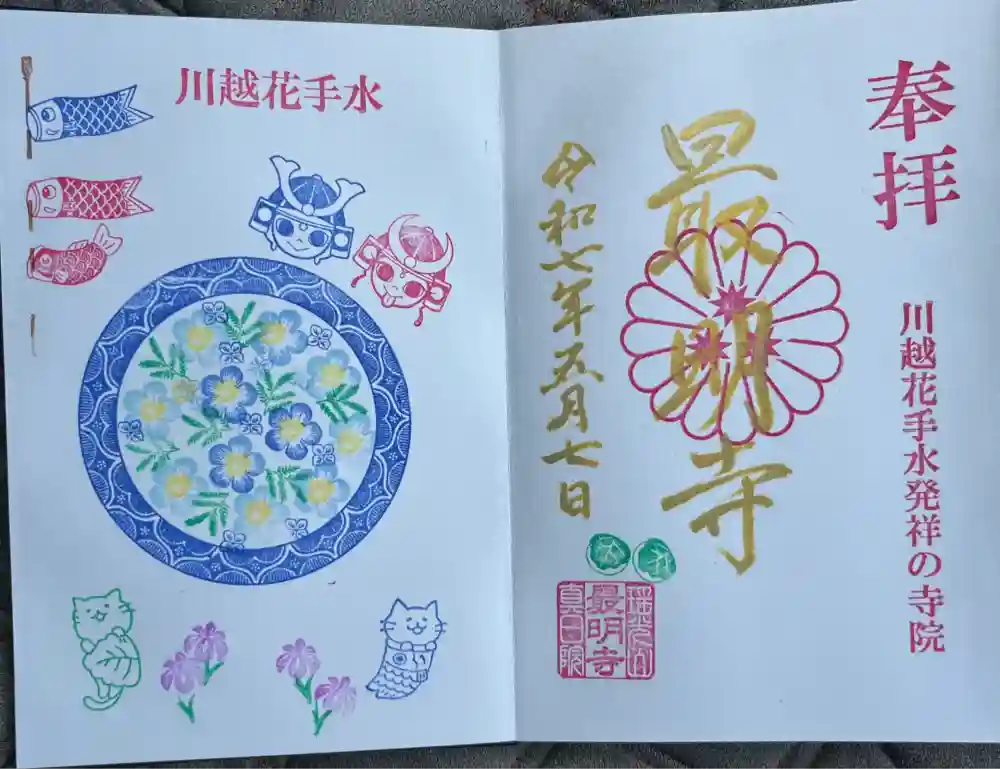 奉拝
川越花手水発祥の寺院
最明寺
令和七年五月七日
最明寺
川越花手水